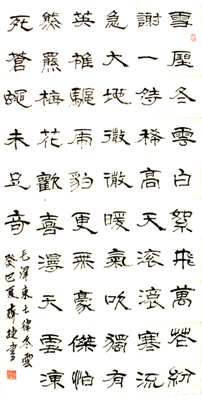 雪壓冬雲白絮飛萬花紛
謝一時稀高天滾滾寒流
急大地微微暖氣吹獨有
英雄驅虎豹更無豪傑怕
熊羆梅花歡喜漫天雪凍
死蒼蠅未足奇
毛澤東七律冬雲
癸巳夏書